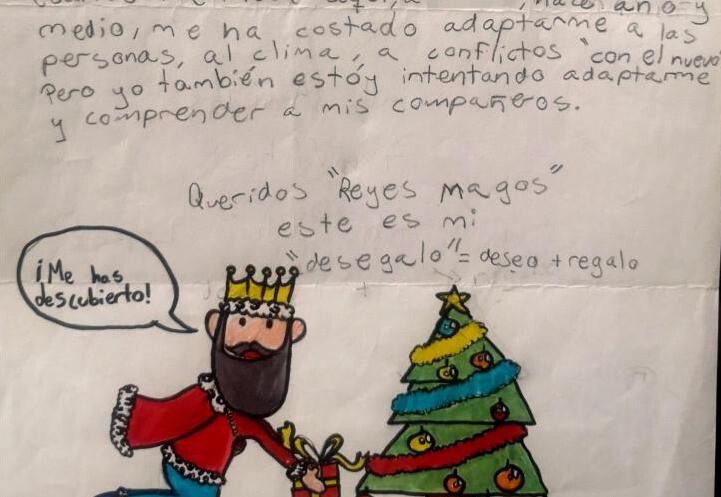 , hace año y
medio, me ha costado adaptarme a las
personas, al clima, a conflictos "con el nuevo
Pero yo también estóy intentando adaptarme
y comprender a mis compañeros.
Queridos "Reyes Magos"
este es mi
"desegalo" = deseo + regalo
¡Me has
descubierto!